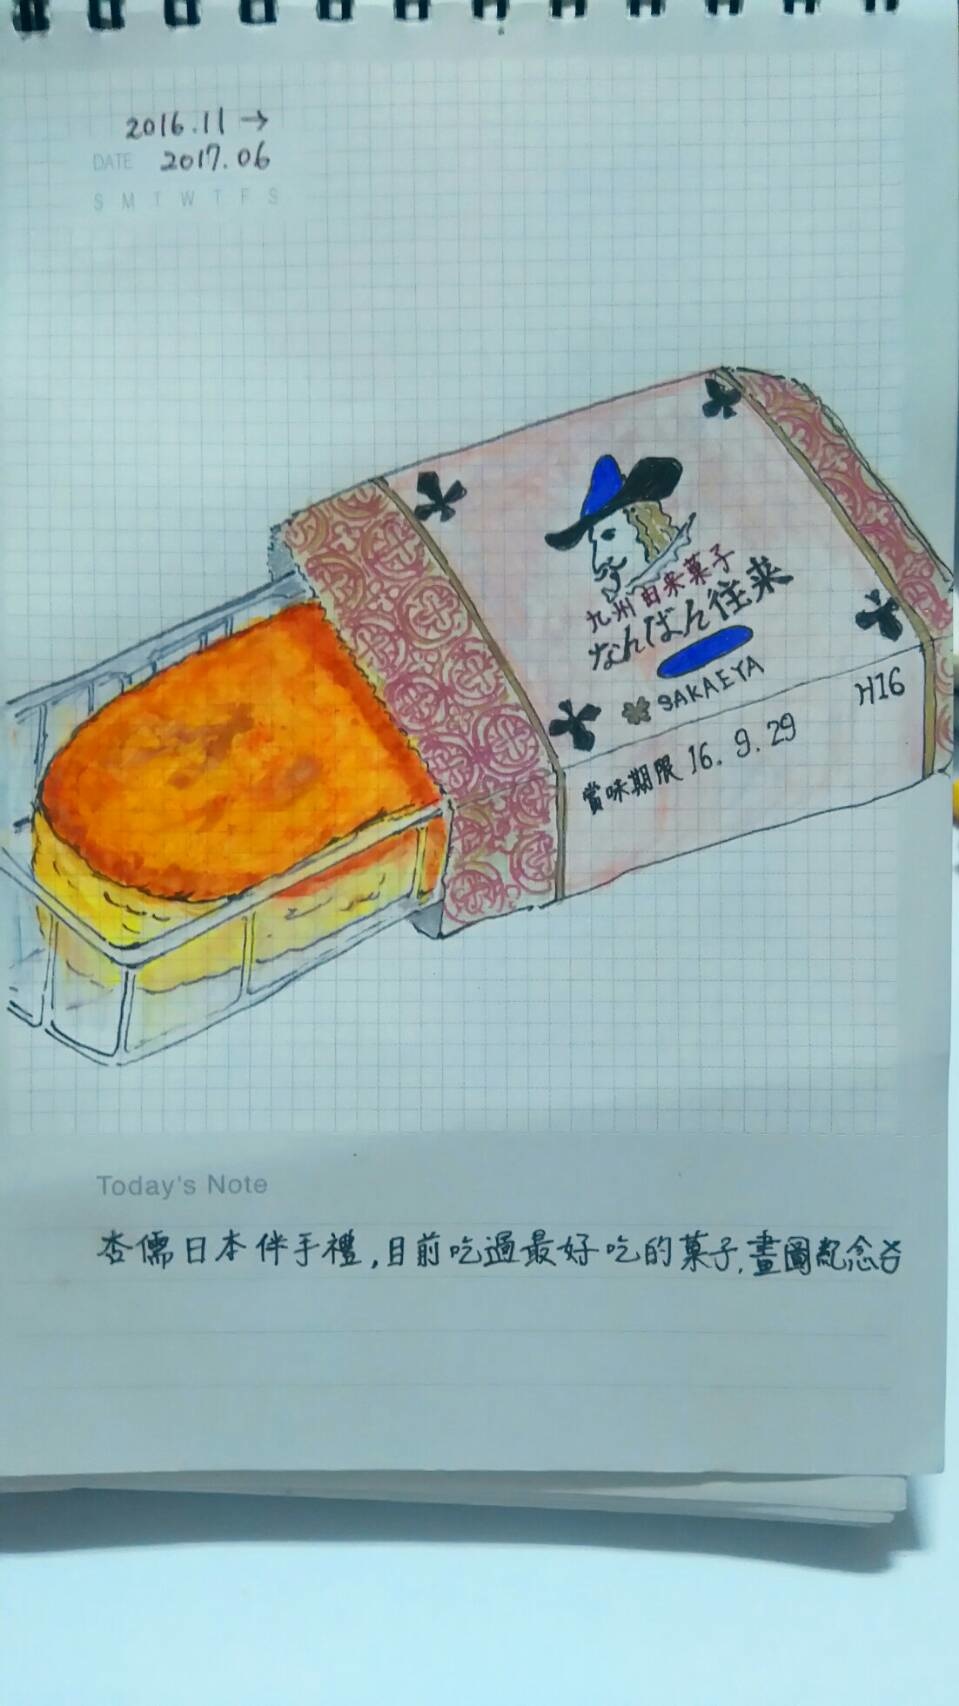 2016.11→
DATE 2017.06
S M T W T F S
九州由来菓子
なんばん往来
SAKAEYA
H16
賞味期限 16. 9. 29
Today's Note
杏儒日本伴手禮,目前吃過最好吃的菓子,畫圖紀念